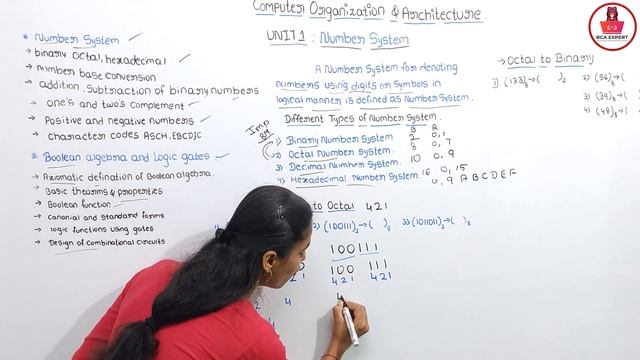 Computer Organization & Architecture.
* Number System
UNIT 1 : Number System
→ binary octal, hexadecimal
→ number base conversion
→ addition. Subtraction of binary numbers
→ one's and two's complement
→ Positive and negative numbers
→ character codes ASCH.EBCDJC
* Boolean algebra and Logic gates
→ Axiomatic defination of Boolean algebra
→ Basic theorems & properties
→ Boolean function
→ canonial and standard forms
→ logic functions using gates
→ Design of combinational circuits
A Number System for denoting
numbers using digits or symbols in
logical manner is defined as Number System.
Different Types of Number System.
Imp
B R
1) Binary Number System 2 0,1
2) Octal Number System 8 0,7
3) Decimal Number System 10 0,9
4) Hexadecimal Number System 16 0,15
0,9 A B C D E F
to Octal 4 2 1
2) (100111)₂→( )₈ 3) (1011011)₂→( )₈
100111
100 111
421 421
4
→ Octal to Binary
1) (133)₈→( )₂ 2) (56)₈→(
3) (39)₈→(
4) (48)₈→(
BCA EXPERT